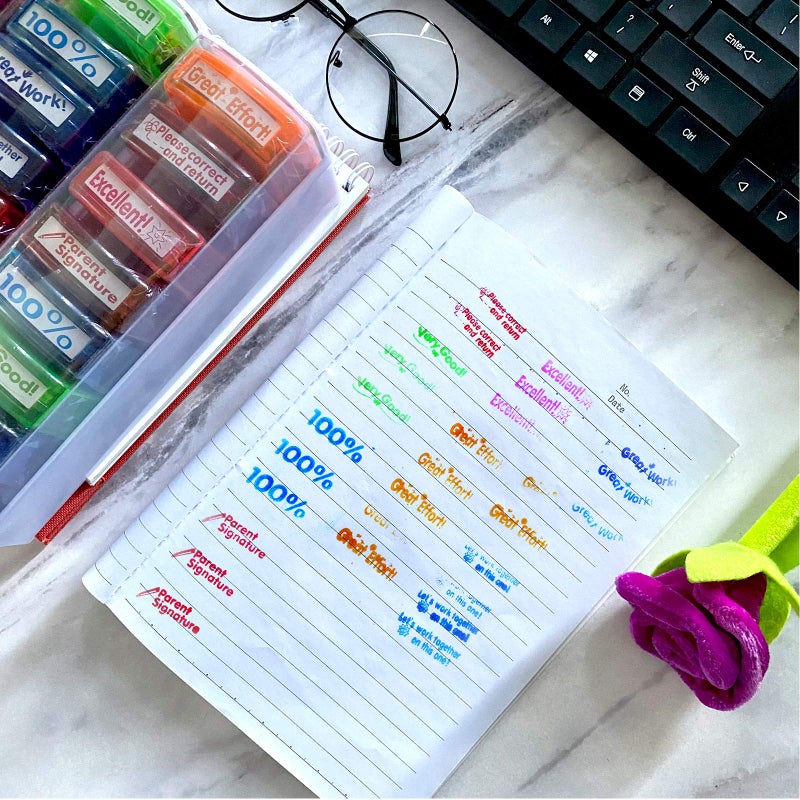 Good!
100%
Great Work!
Great Effort!
Please correct
and return
together
Excellent!
Parent
Signature
100%
Good!
Alt
?
/
Enter
Shift
Ctrl
No.
Date
Please correct
and return
Please correct
and return
Very Good!
Very Good!
Very Good!
Excellent!
Excellent!
Excellent!
100%
100%
100%
Great Effort!
Great Effort!
Great
Great Effort!
Great Effort!
Great E
Great Effort!
Great Work!
Great Work!
Great Work
Parent
Signature
Parent
Signature
Parent
Signature
Let's work together
on this one!
together
on this one!
Let's work together
on this one!
Let's work together
on this one!